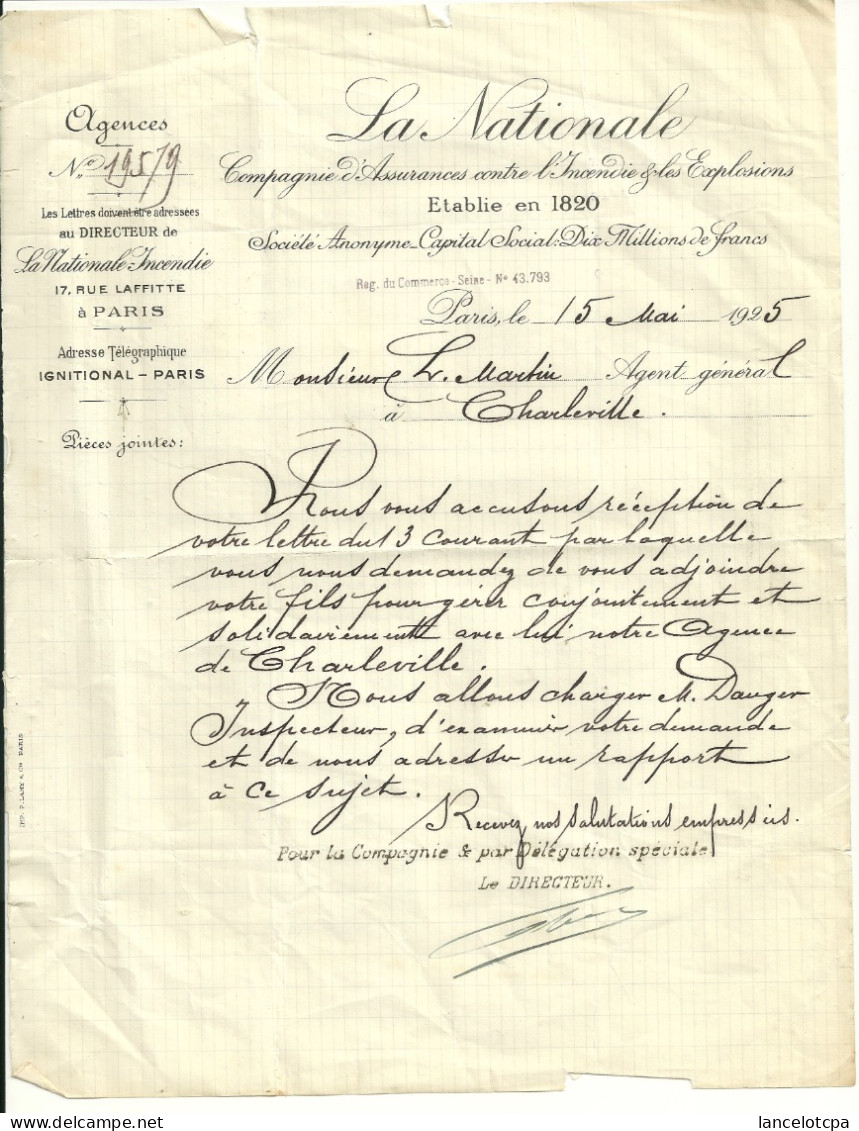 Agences
N° 19579
Les Lettres doivent être adressées
au DIRECTEUR de
La Nationale-Incendie
17, RUE LAFFITTE
à PARIS
Adresse Télégraphique
IGNITIONAL - PARIS
Pièces jointes:
La Nationale
Compagnie d'Assurances contre l'Incendie & les Explosions
Etablie en 1820
Société Anonyme - Capital Social: Dix Millions de francs
Reg. du Commerce - Seine - N° 43.793
Paris, le 15 Mai 1925
Monsieur L. Martin Agent général
à Charleville.
Nous vous accusons réception de
votre lettre du 13 courant par laquelle
vous nous demandez de vous adjoindre
votre fils pour gérer conjointement et
solidairement avec lui notre Agence
de Charleville.
Nous allons charger M. Dauger
Inspecteur, d'examiner votre demande
et de nous adresser un rapport
à ce sujet.
Recevez nos salutations empressées.
Pour la Compagnie & par Délégation spéciale
Le DIRECTEUR.
IMP. P. LAMY & CIE PARIS
lancelotcpa